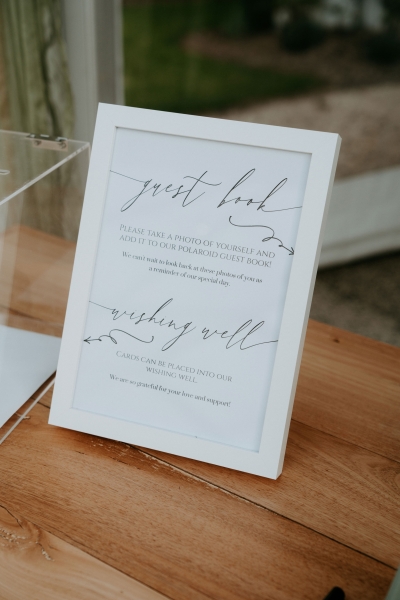 guest book
Please take a photo of yourself and
add it to our polaroid guest book!
We can't wait to look back at these photos of you as
a reminder of our special day.
wishing well
Cards can be placed into our
wishing well.
We are so grateful for your love and support!